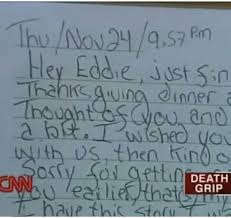 Thu/Nov 24/9:57 Pm
Hey Eddie, just fin
Thanksgiving dinner a
Thought of you, and
a lot. I wished you
with us, then kind o
Sorry for gettin
you earlier, that's my
I have this story
CNN
DEATH
GRIP